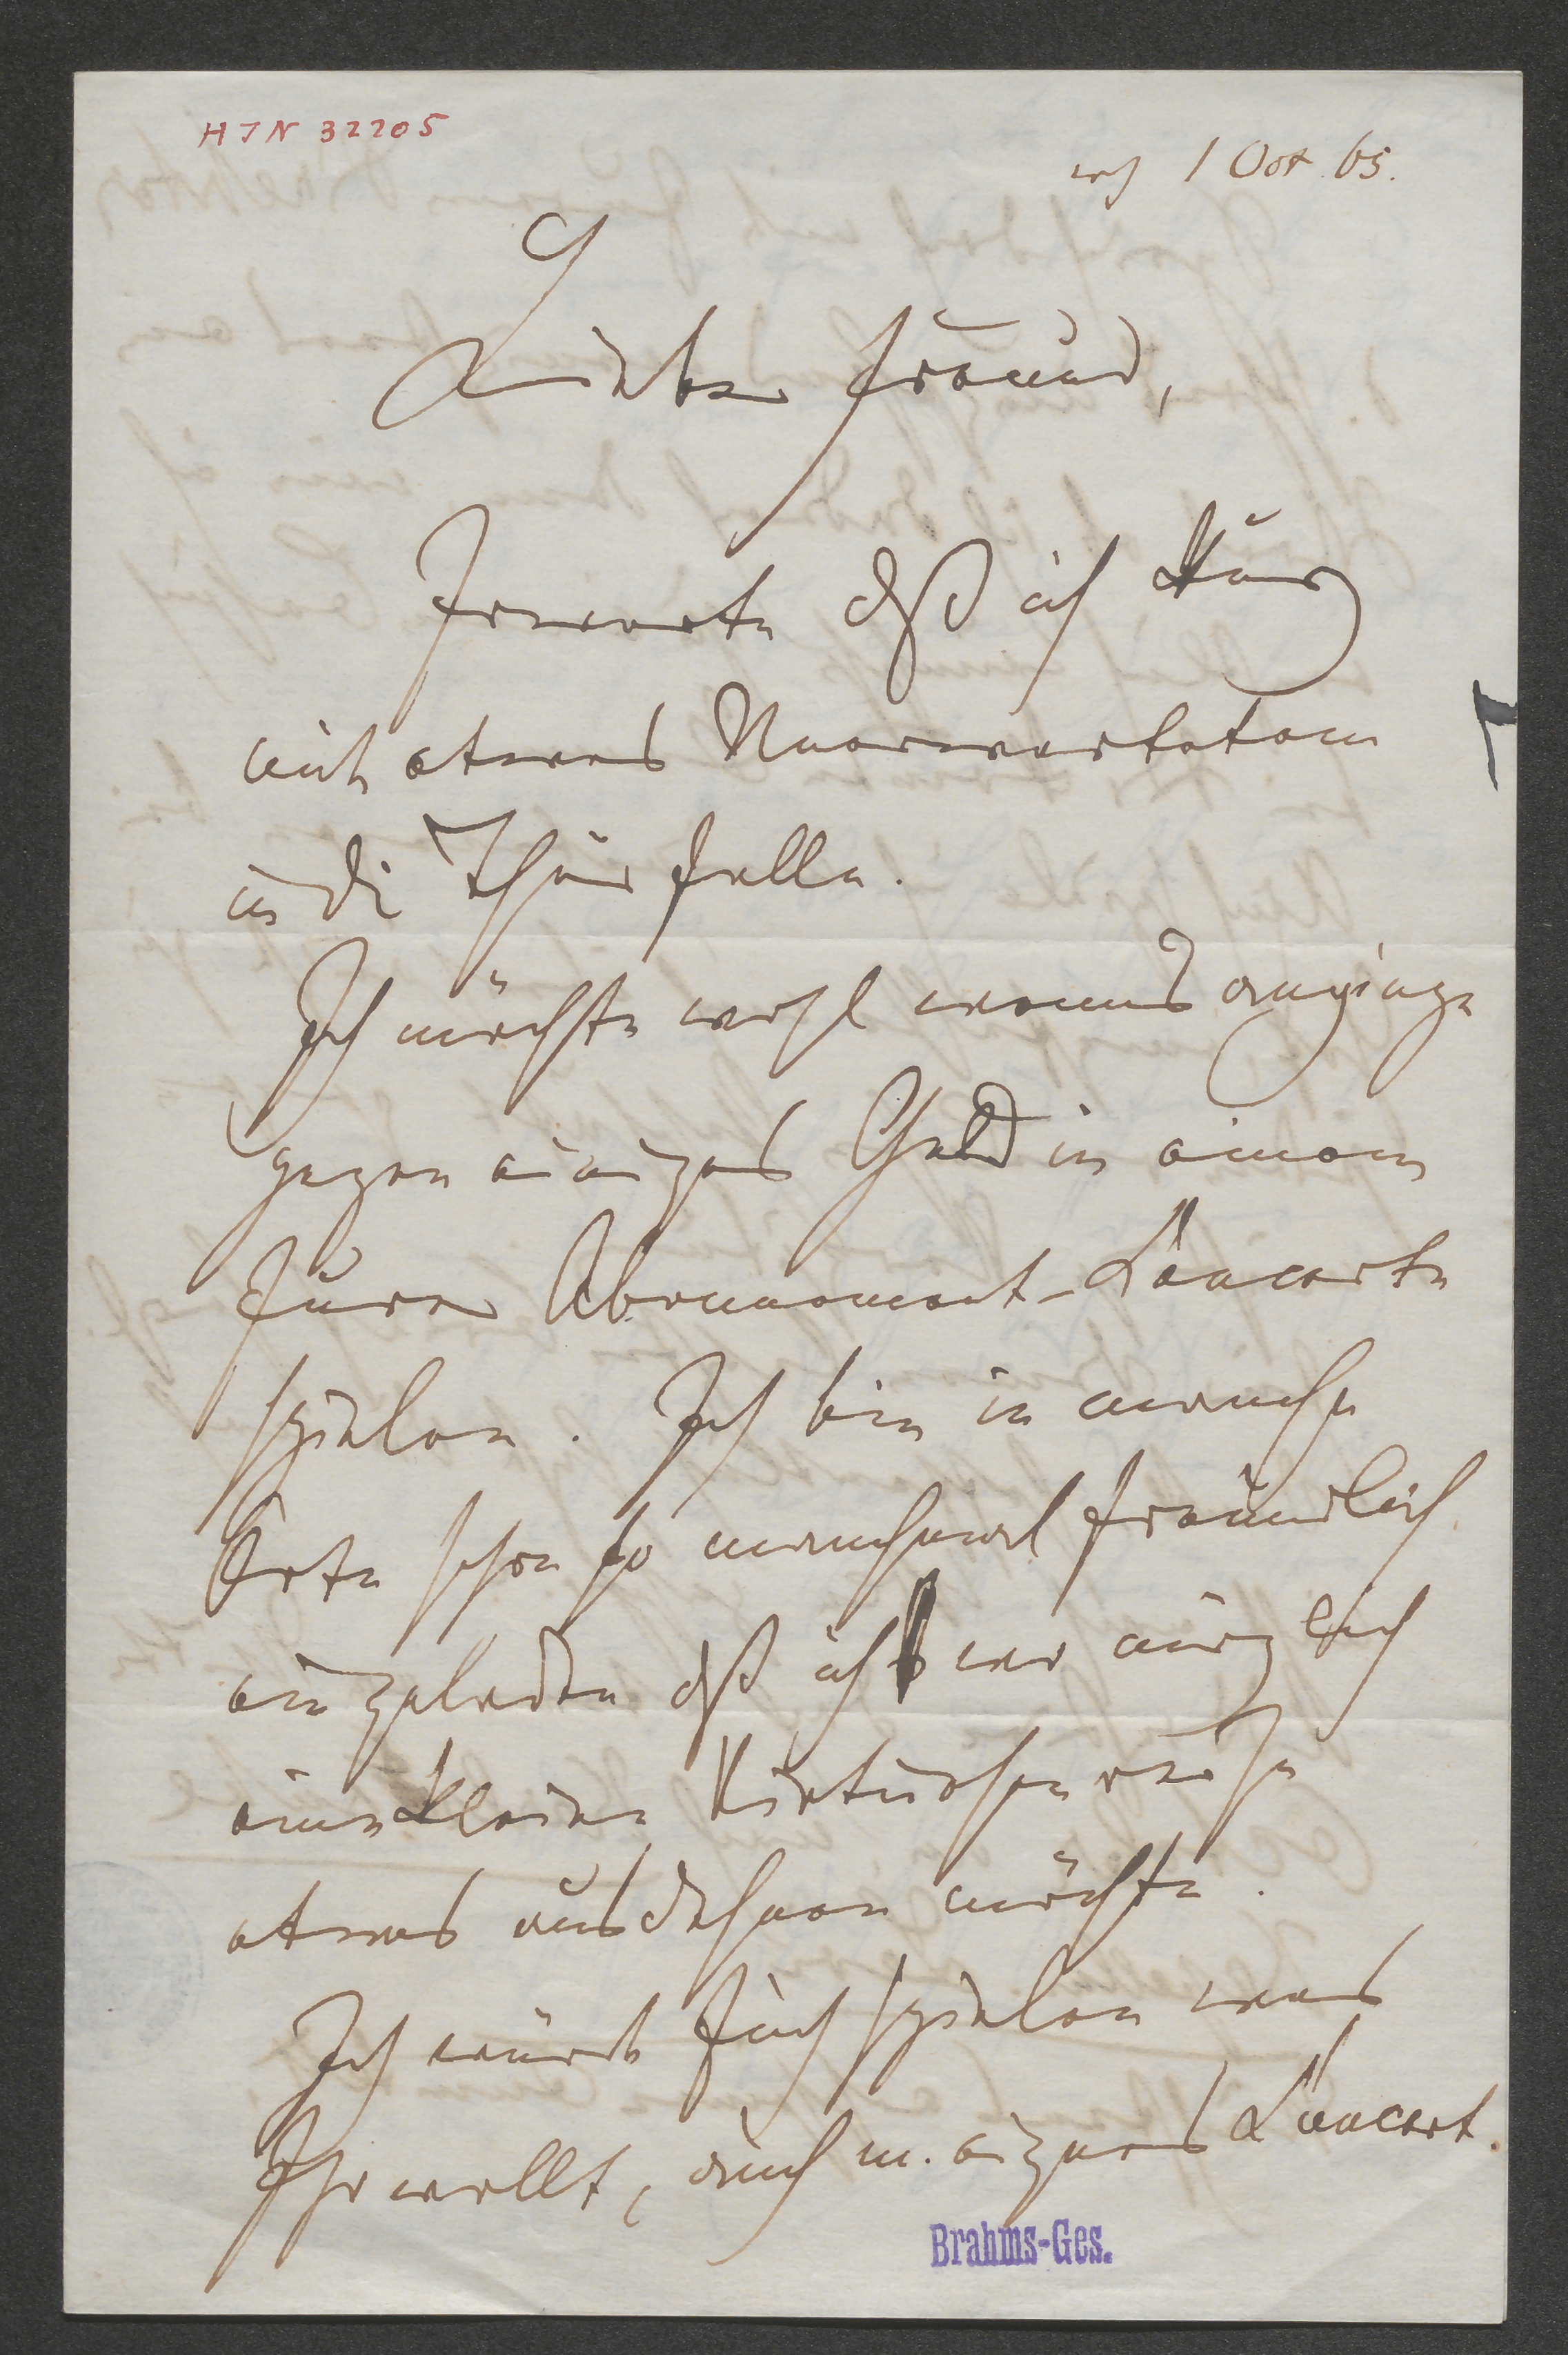 HJN 32205
1 Oct. 65.
Lieber Freund,
Erwarte daß ich kurz
mit etwas Unerwartetem
in die Thür falle.
Ich möchte wohl wenns anginge
gegen einiges Geld in einem
Eurer Abonnement-Concerte
spielen. Ich bin in manche
Orte schon so manchmal freundlich
eingeladen daß ich wo möglich
eine kleine Virtuosenreise
etwas ausdehnen möchte.
Ich würde Euch spielen was
Ihr wollt, auch m. eignes Concert.
Brahms-Ges.